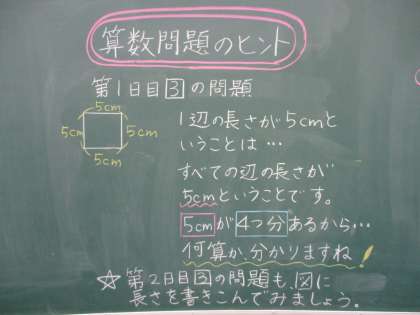 算数問題のヒント
第1日目3の問題
5cm
5cm 5cm
5cm
1辺の長さが5cmと
いうことは…
すべての辺の長さが
5cmということです。
5cmが4つ分あるから…
何算か、分かりますね!
☆第2日目3の問題も、図に
長さを書きこんでみましょう。